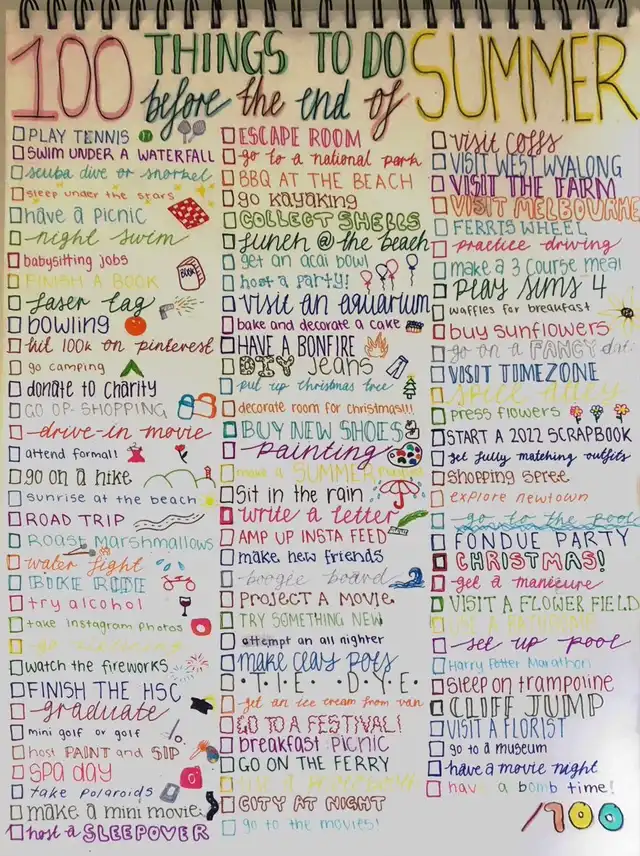 100 THINGS TO DO
before the end of SUMMER
PLAY TENNIS
SWIM UNDER A WATERFALL
scuba dive or snorkel
sleep under the stars
have a picnic
night swim
babysitting jobs
FINISH A BOOK
laser tag
bowling
hit 100k on pinterest
go camping
donate to charity
GO OP-SHOPPING
drive-in movie
attend formal!
go on a hike
sunrise at the beach
ROAD TRIP
ROAST MARSHMALLOWS
water fight
BIKE RIDE
try alcohol
take instagram photos
go
watch the fireworks
FINISH THE HSC
graduate
mini golf or golf
host PAINT and SIP
SPA DAY
take polaroids
make a mini movie
host a SLEEPOVER
ESCAPE ROOM
go to a national park
BBQ AT THE BEACH
go kayaking
COLLECT SHELLS
lunch @ the beach
get an acai bowl
host a party!
visit an aquarium
bake and decorate a cake
HAVE A BONFIRE
DIY jeans
put up christmas tree
decorate room for christmas!!!
BUY NEW SHOES
painting
make a SUMMER
sit in the rain
write a letter
AMP UP INSTA FEED
make new friends
boogie board
PROJECT A MOVIE
TRY SOMETHING NEW
attempt an all nighter
make clay pots
TIE DYE
get an ice cream from van
GO TO A FESTIVAL!
breakfast picnic
GO ON THE FERRY
CITY AT NIGHT
go to the movies!
visit coffs
VISIT WEST WYALONG
VISIT THE FARM
VISIT MELBOURNE
FERRIS WHEEL
practice driving
make a 3 course meal
play SIMS 4
waffles for breakfast
buy sunflowers
go on a FANCY date
VISIT TIMEZONE
press flowers
START A 2022 SCRAPBOOK
get fully matching outfits
shopping spree
explore newtown
go to the pool
FONDUE PARTY
CHRISTMAS!
get a manicure
VISIT A FLOWER FIELD
set up pool
Harry Potter Marathon
sleep on trampoline
CLIFF JUMP
VISIT A FLORIST
go to a museum
have a movie night
have a bomb time!
/100